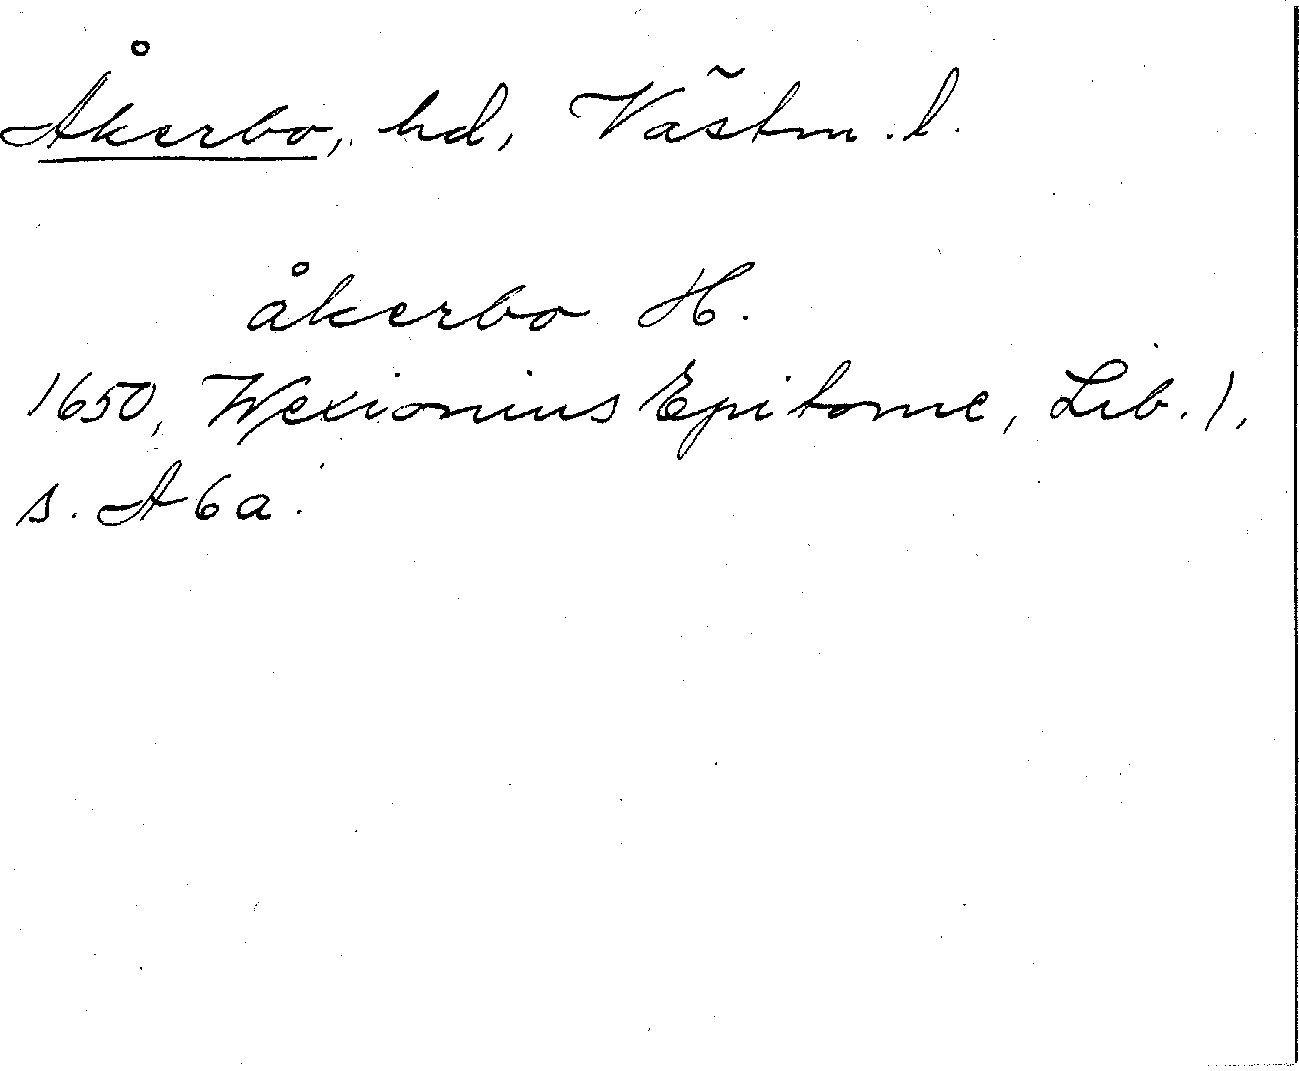 Åkerbo, hd, Västm. l.
åkerbo H.
1650, Wexionius Epitome, Lib. 1,
s. A 6 a.